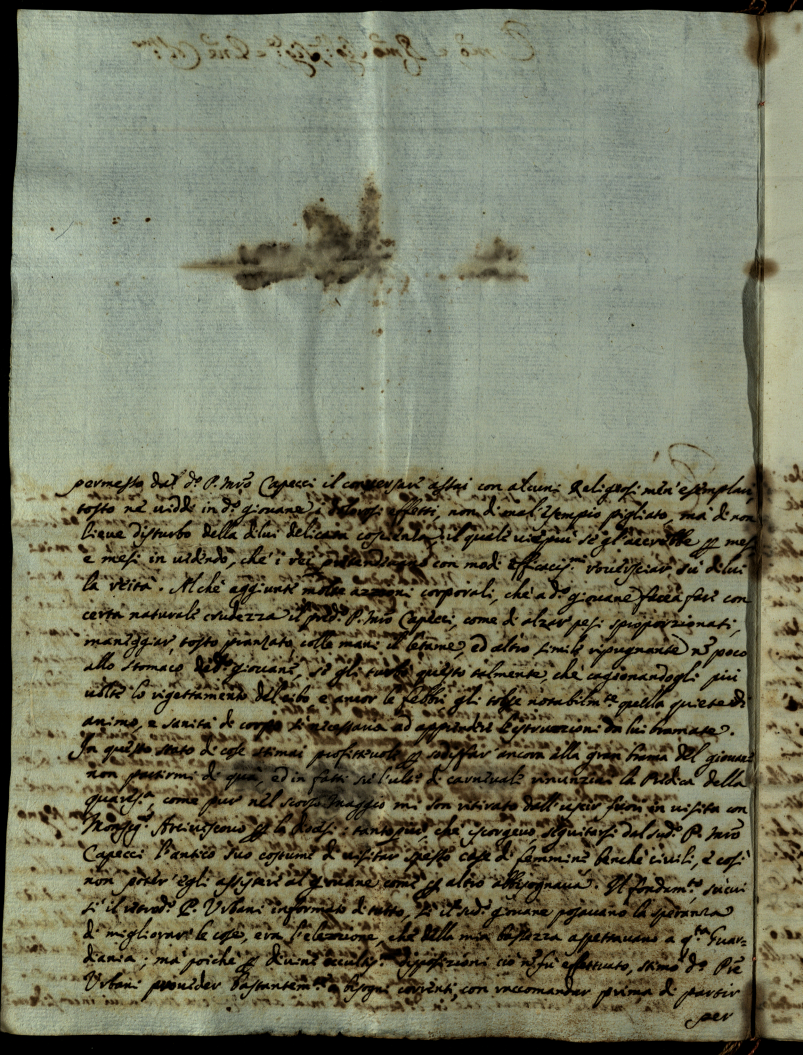 permesso dal d.º P. Mro Capecci il conversare assai con alcuni Religiosi men' esemplari
tosto ne viddi in d.º giovane i dolorosi effetti, non di mal' esempio pigliato, ma di non
lieve disturbo della di lui delicata coscienza, il quale vieppiù se gl'accrebbe p mesi
e mesi in vedendo, che i rei pretendeano con modi efficaciss.i rovesciar sù di lui
la reità. Al che aggiunte molte azzioni corporali, che a d.º giovane facea fare con
certa naturale crudezza il pred.º P. Mro Capecci, come di alzar pesi sproporzionati,
maneggiar tosto pranzato colle mani il letame, ed altro simile ripugnante nõ poco
allo stomaco de' giovani, se gli turbò questo talmente, che cagionandogli più
volte lo rigettamento del cibo e ancor le febbri gli tolse notabilm.te quella quiete di
animo, e sanità di corpo sì necessaria ad apprender l'istruzzioni da lui bramate.
In questo stato di cose stimai profittevole p sodisfar ancora alla gran brama del giovane
non partirmi di quà, ed in fatti sù l'ult.º di carnevale rinunziai la Predica della
quares.ª, come pur nel scorso maggio mi son ritirato dall'uscir fuori in visita con
Monsig.r Arcivescovo p la Diocesi: tanto più, che scorgevo seguitarsi dal sud.º P. Mro
Capecci l'antico suo costume di visitar spesso case di femmine benchè civili, e così
non poter egli assistere al giovane come p altro abbisognava. Il fondam.to, sù cui
sì il rev.do P. Urbani informato di tutto, sì il sud.º giovane posavano la speranza
di migliorare le cose, era l'elezzione, che della mia bassezza aspettavano a q.ta Guar-
diania; ma poichè p divine occulte disposizioni ciò nõ fù effettuato, stimò d.º Pre
Urbani proveder bastantem.te a' bisogni correnti, con raccomandar prima di partir
per